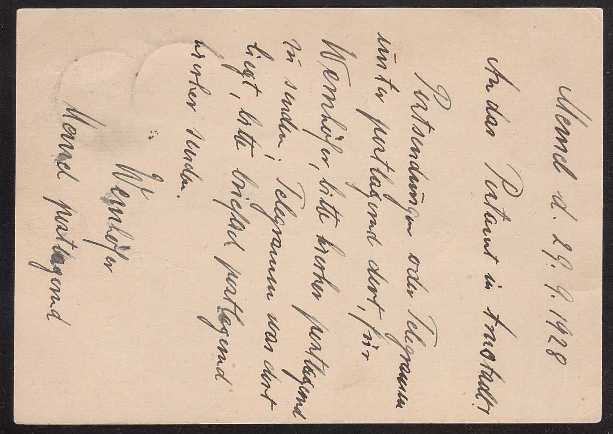 Memel d. 29.9.1928
An das Postamt in Arnstadt!
Postsendungen oder Telegramm
unter postlagernd dort, für
Wernhöfer, bitte hierher postlagernd
zu senden; Telegramm was dort
liegt, bitte brieflich postlagernd
hierher senden.
Wernhöfer
Memel postlagernd